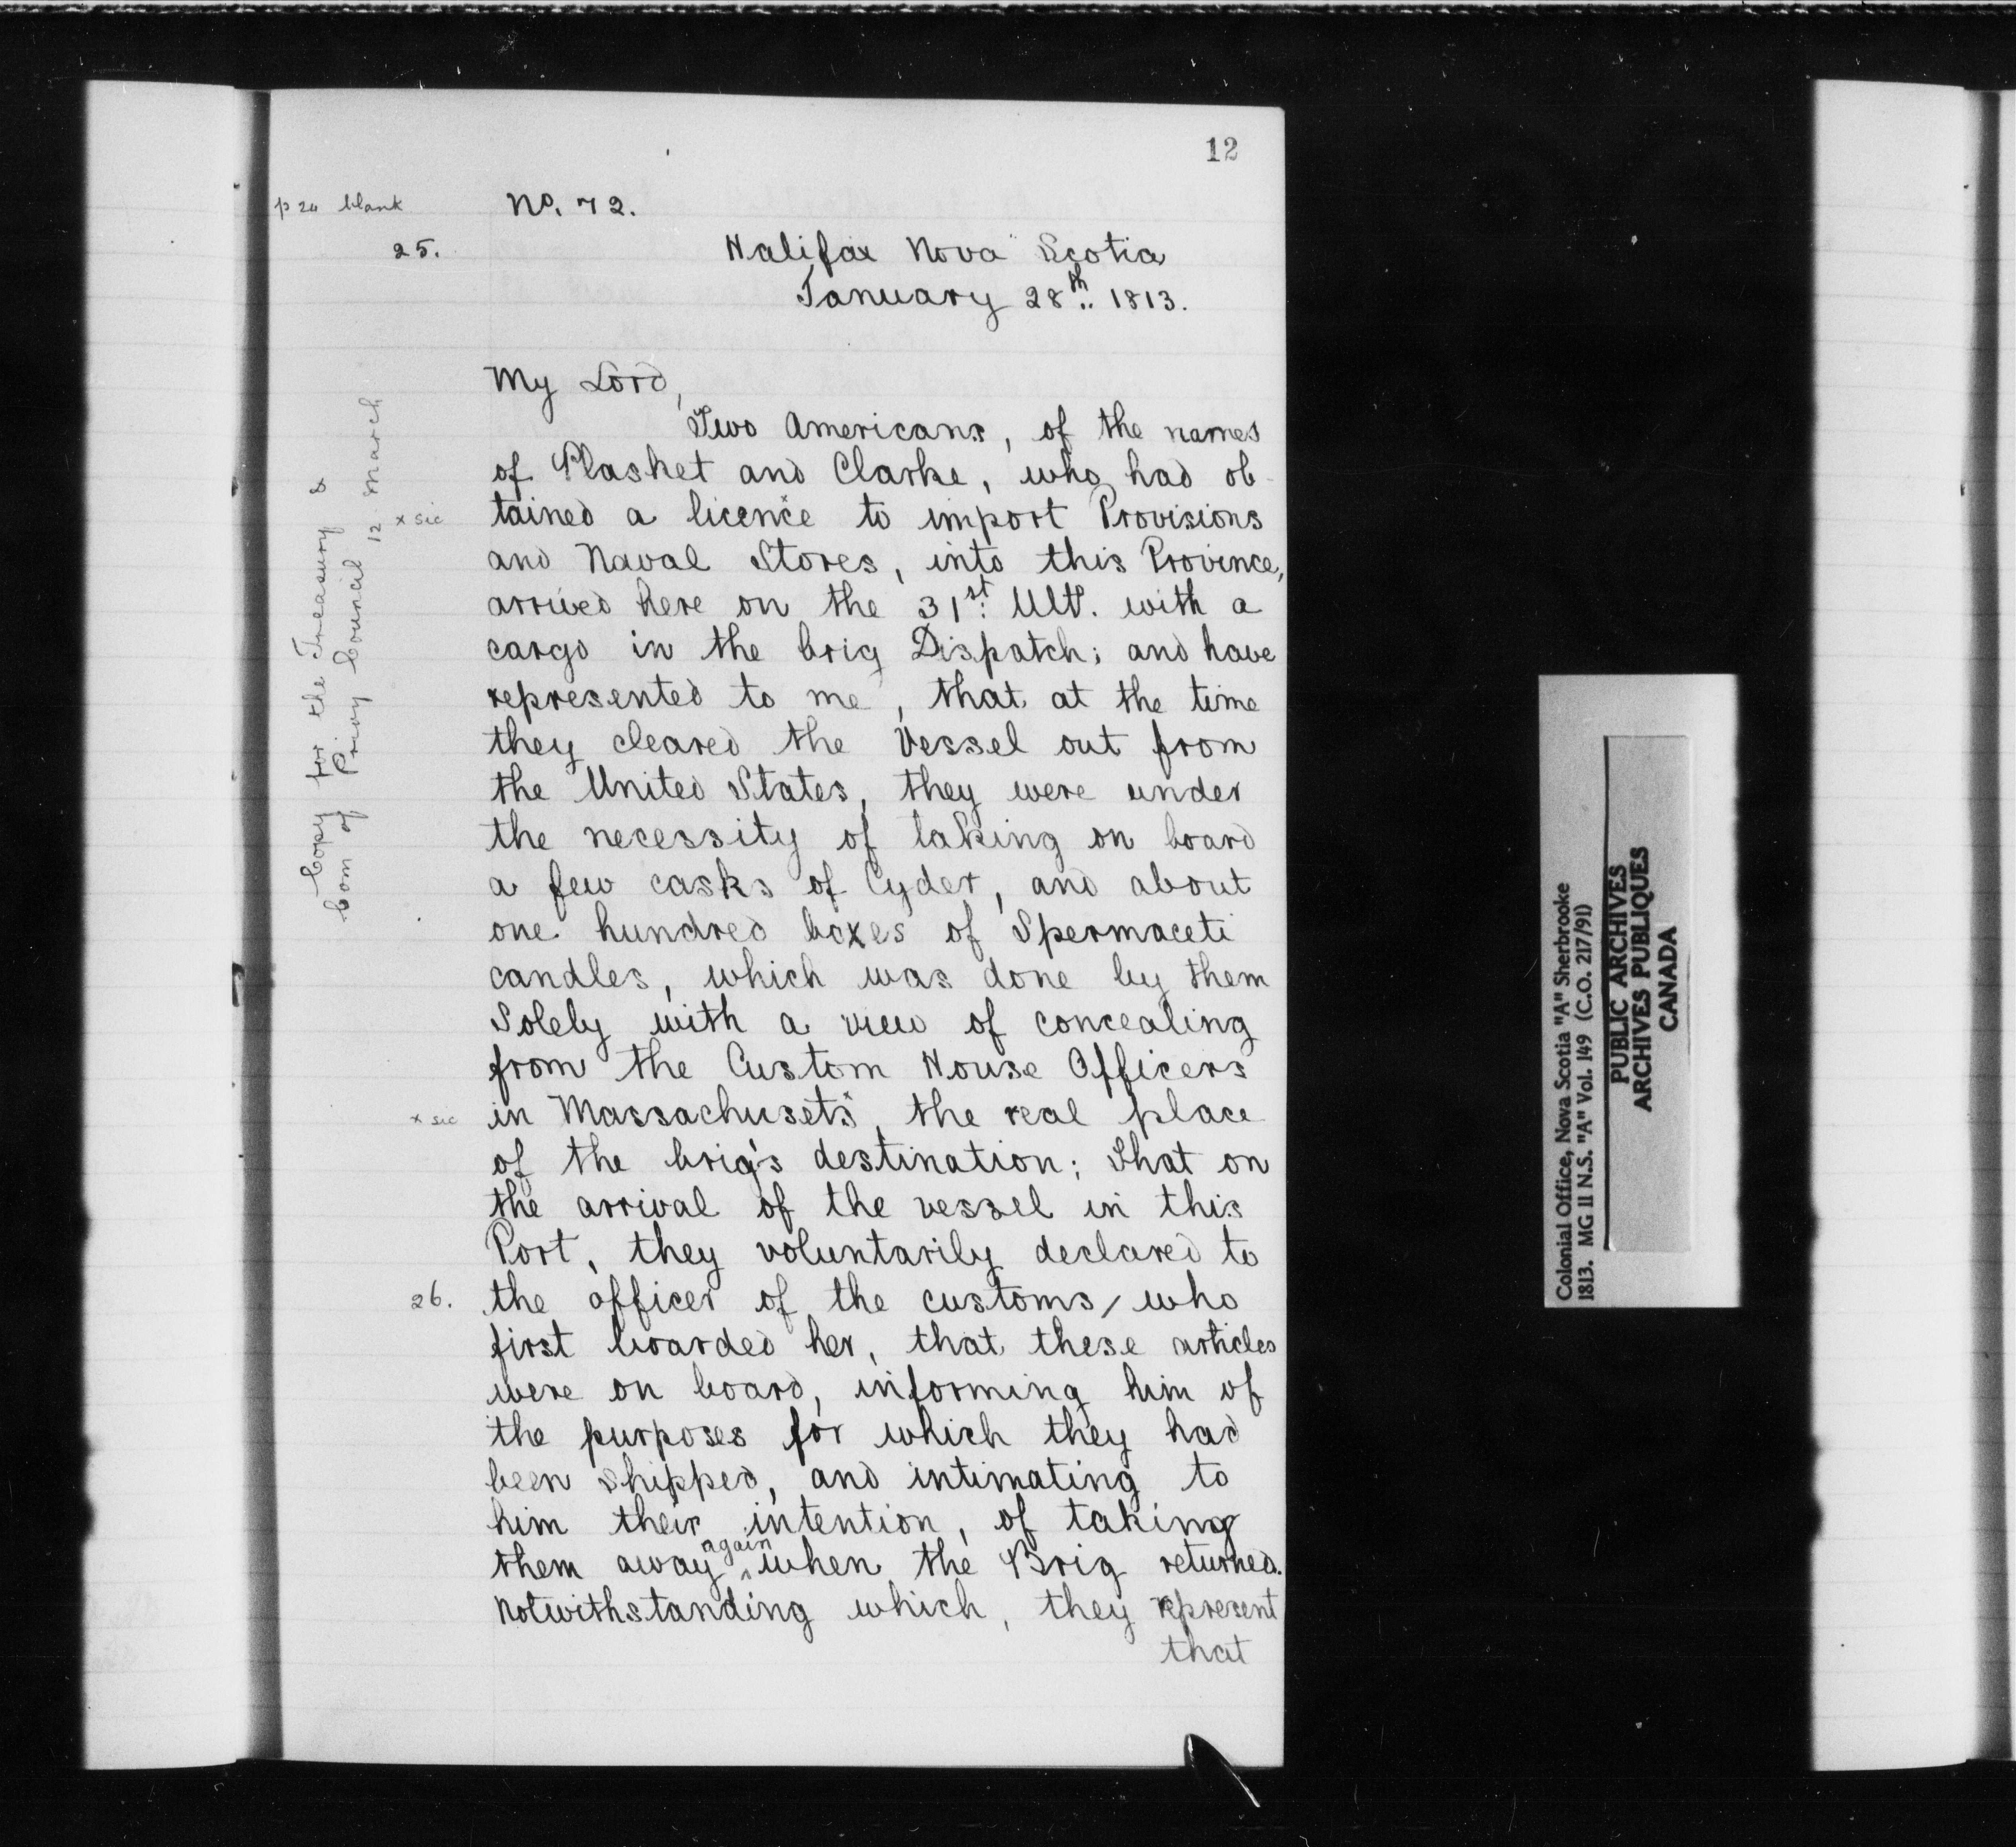 12
p 24 blank
No. 72.
25.
Halifax Nova Scotia
January 28th. 1813.
My Lord,
Two Americans, of the names
of Plasket and Clarke, who had ob-
x sic
tained a licence x to import Provisions
and Naval Stores, into this Province,
arrived here on the 31st. Ulto. with a
cargo in the brig Dispatch; and have
represented to me, that at the time
they cleared the Vessel out from
the United States, they were under
the necessity of taking on board
a few casks of Cyder, and about
one hundred boxes of Spermaceti
candles, which was done by them
Solely with a view of concealing
from the Custom House Officers
x sic
in Massachusets x, the real place
of the brig's destination; That on
the arrival of the vessel in this
Port, they voluntarily declared to
26.
the officer of the customs, who
first boarded her, that these articles
were on board, informing him of
the purposes for which they had
been shipped, and intimating to
him their intention, of taking
them away ^again when the Brig returned.
Notwithstanding which, they represent
that
Copy for the Treasury &
Com of Privy Council 12 March
Colonial Office, Nova Scotia "A" Sherbrooke
1813. MG 11 N.S. "A" Vol. 149 (C.O. 217/91)
PUBLIC ARCHIVES
ARCHIVES PUBLIQUES
CANADA